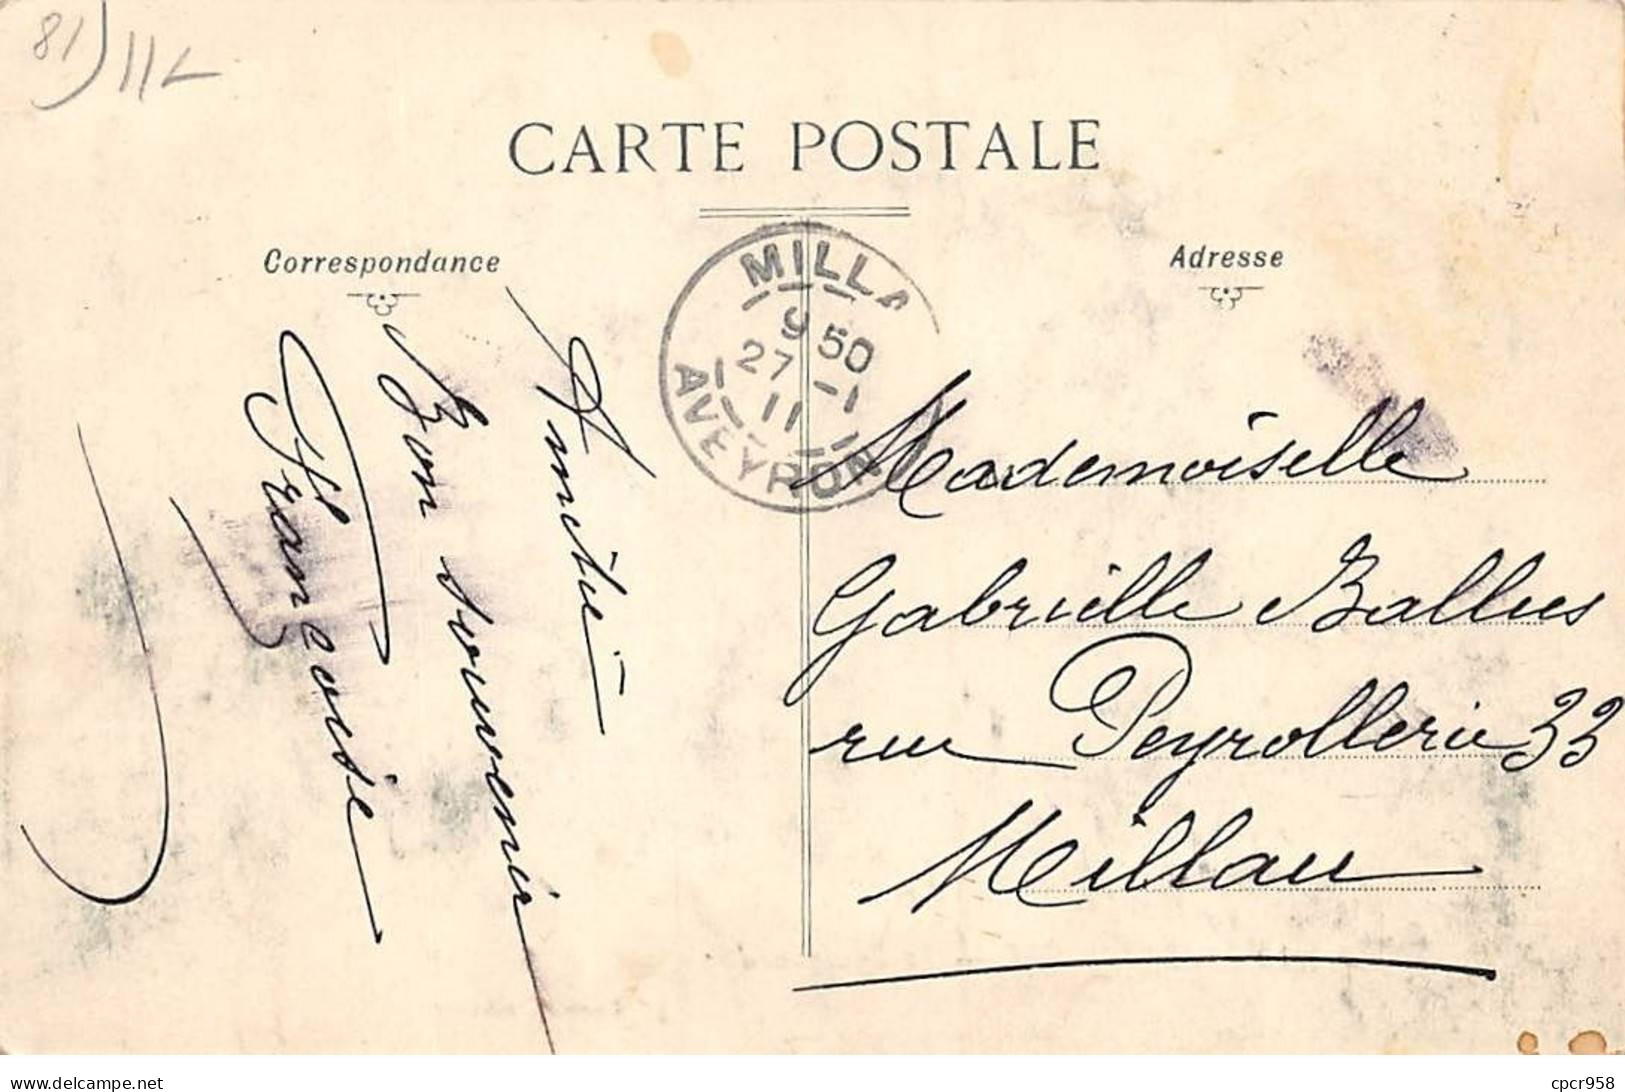 81) 11L
CARTE POSTALE
Correspondance
Adresse
MILLA
9 50
27 - 1
11
AVEYRON
Amitié
Bon souvenir
Françoise
Mademoiselle
Gabrielle Ballues
rue Peyrollerie 33
Millau
www.delcampe.net
cpcr958